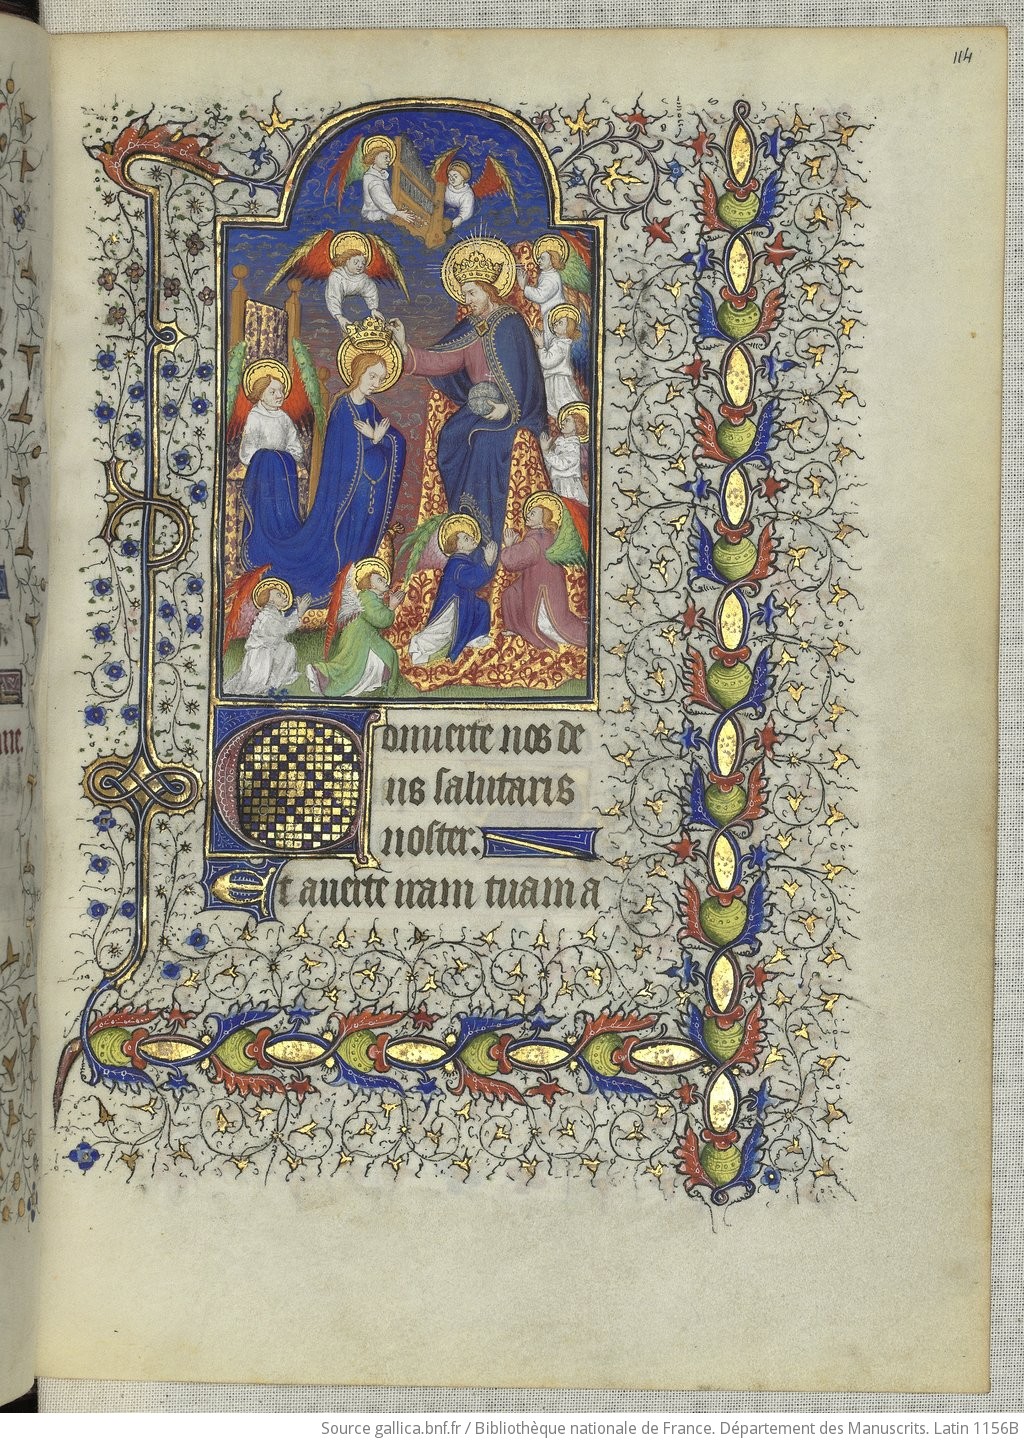 114
Conuerte nos de
us salutaris
noster.
Et auerte iram tuam a
Source gallica.bnf.fr / Bibliothèque nationale de France. Département des Manuscrits. Latin 1156B